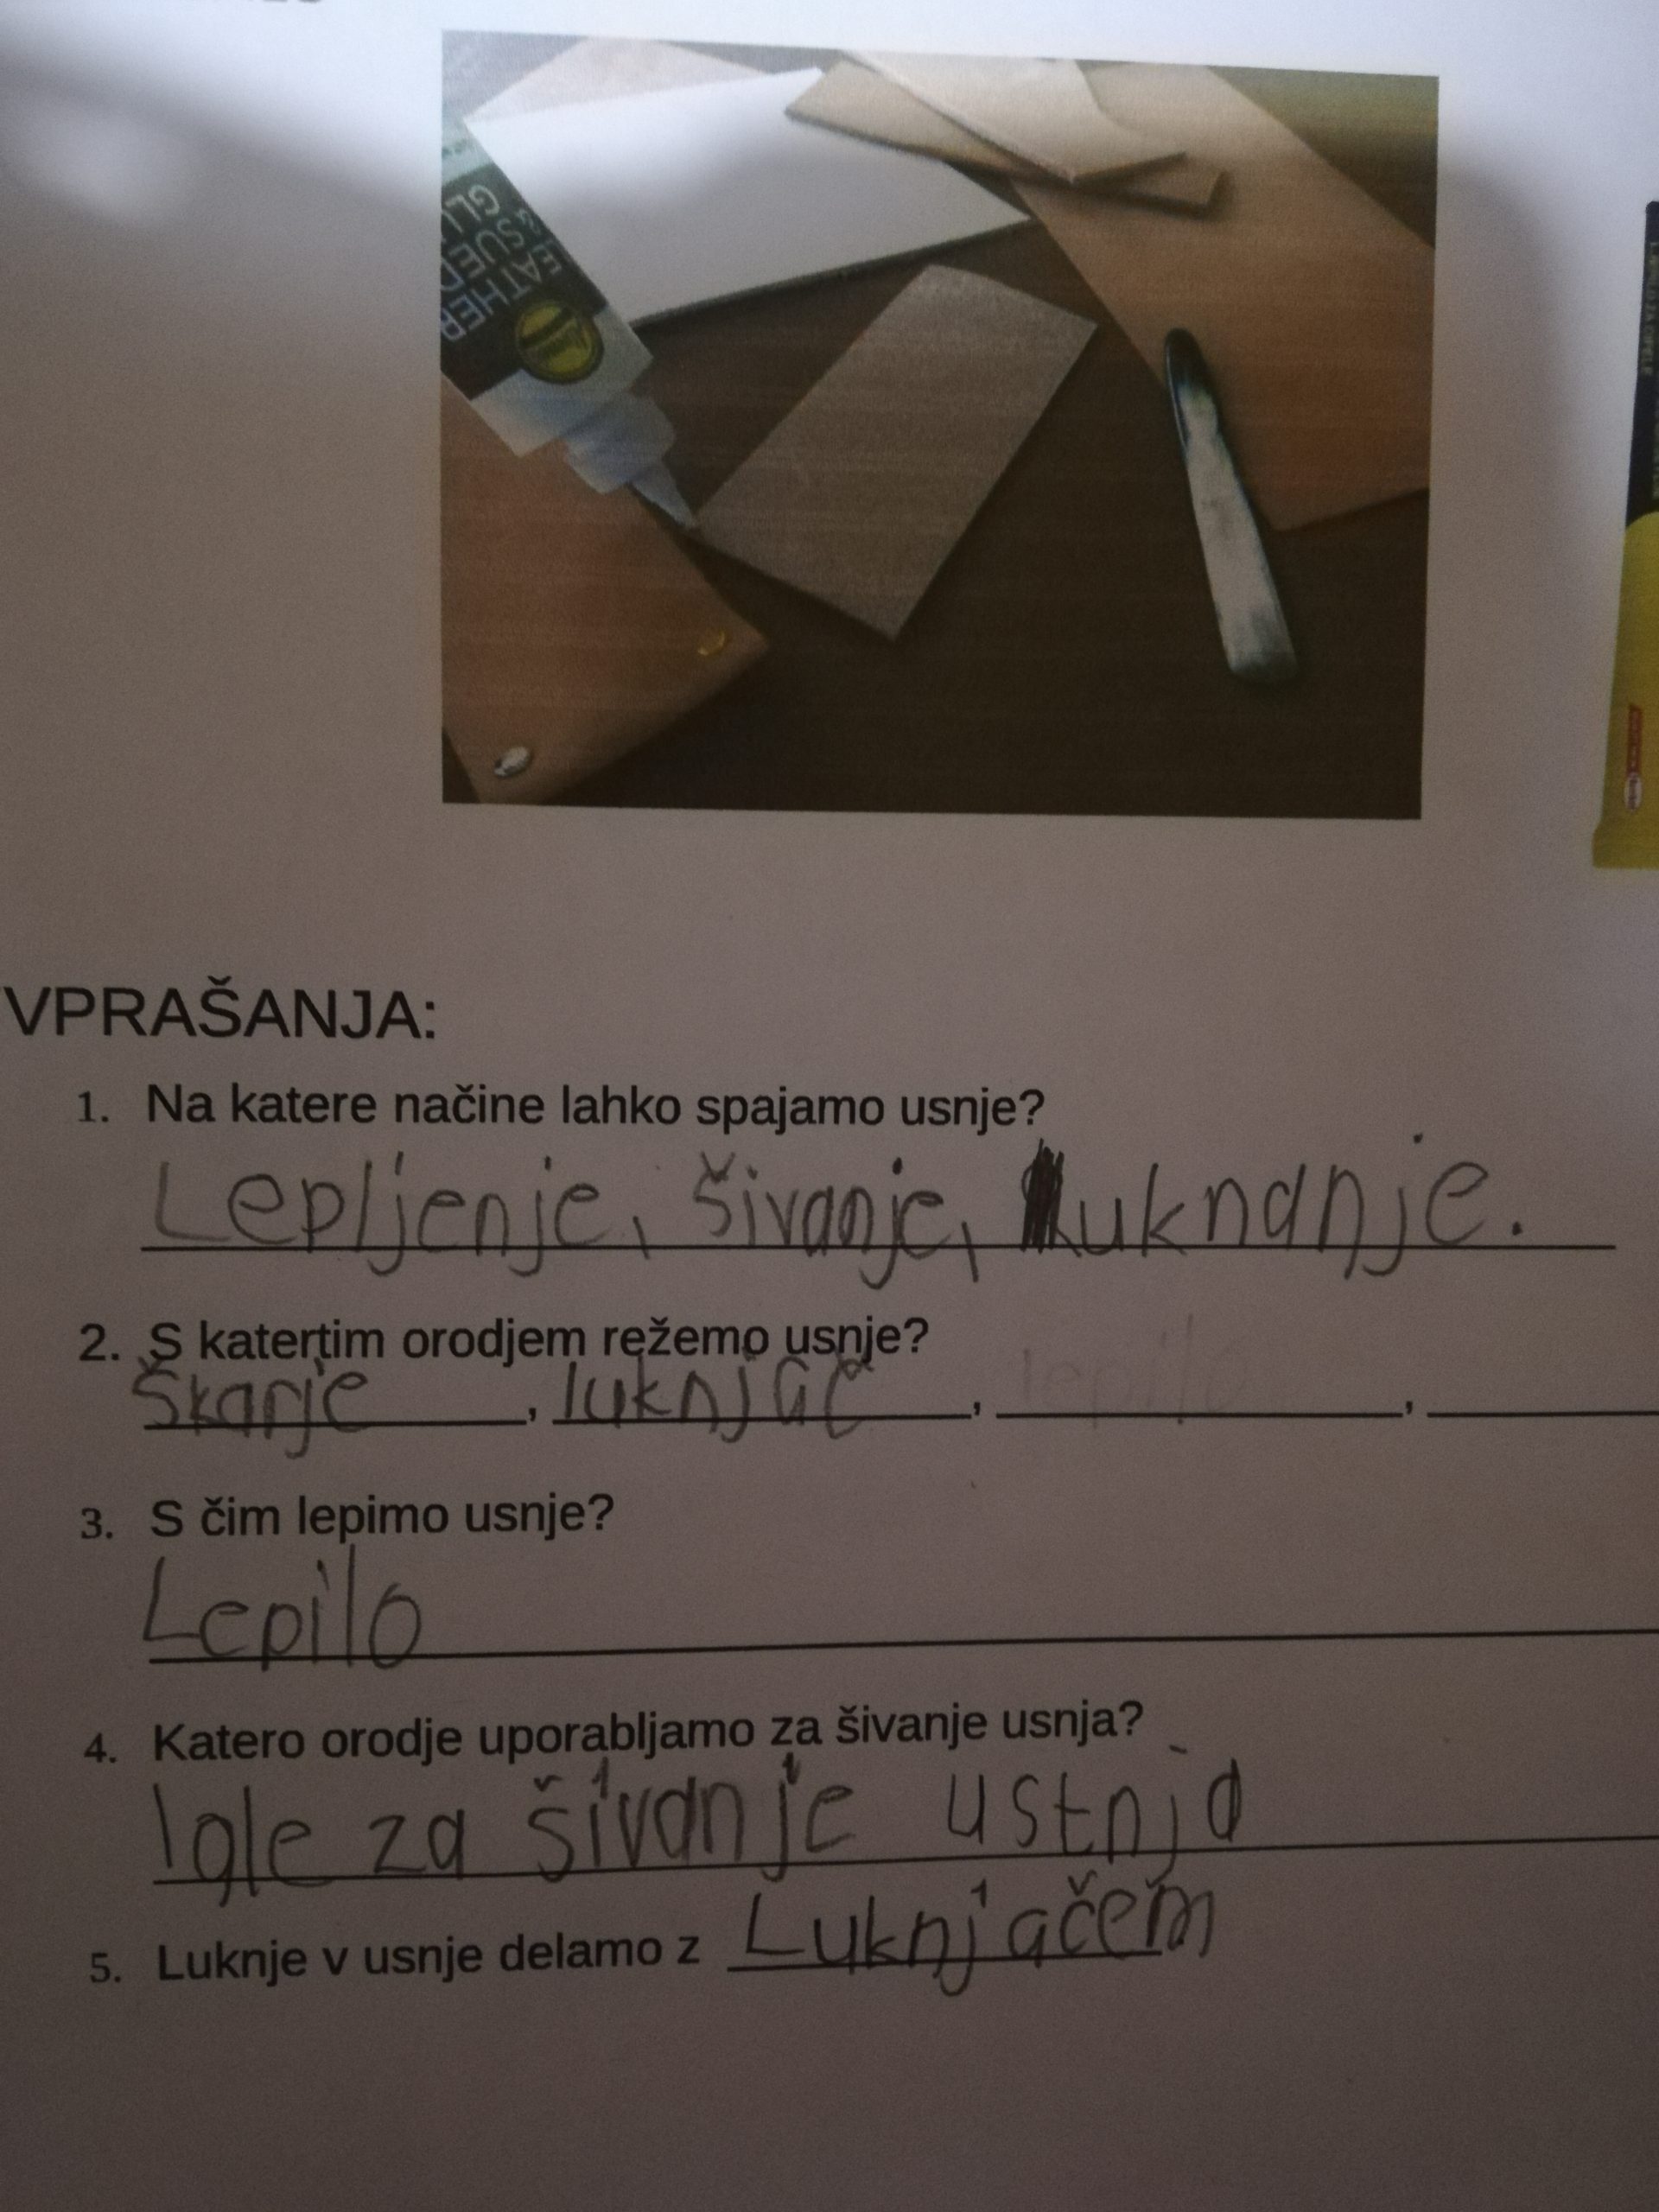 LEATHER
SUEDE
GLU
VPRAŠANJA:
1. Na katere načine lahko spajamo usnje?
Lepljenje, šivanje, luknanje.
2. S katertim orodjem režemo usnje?
Škarje, luknjač, lepilo,
3. S čim lepimo usnje?
Lepilo
4. Katero orodje uporabljamo za šivanje usnja?
Igle za šivanje ustnja
5. Luknje v usnje delamo z Luknjačem